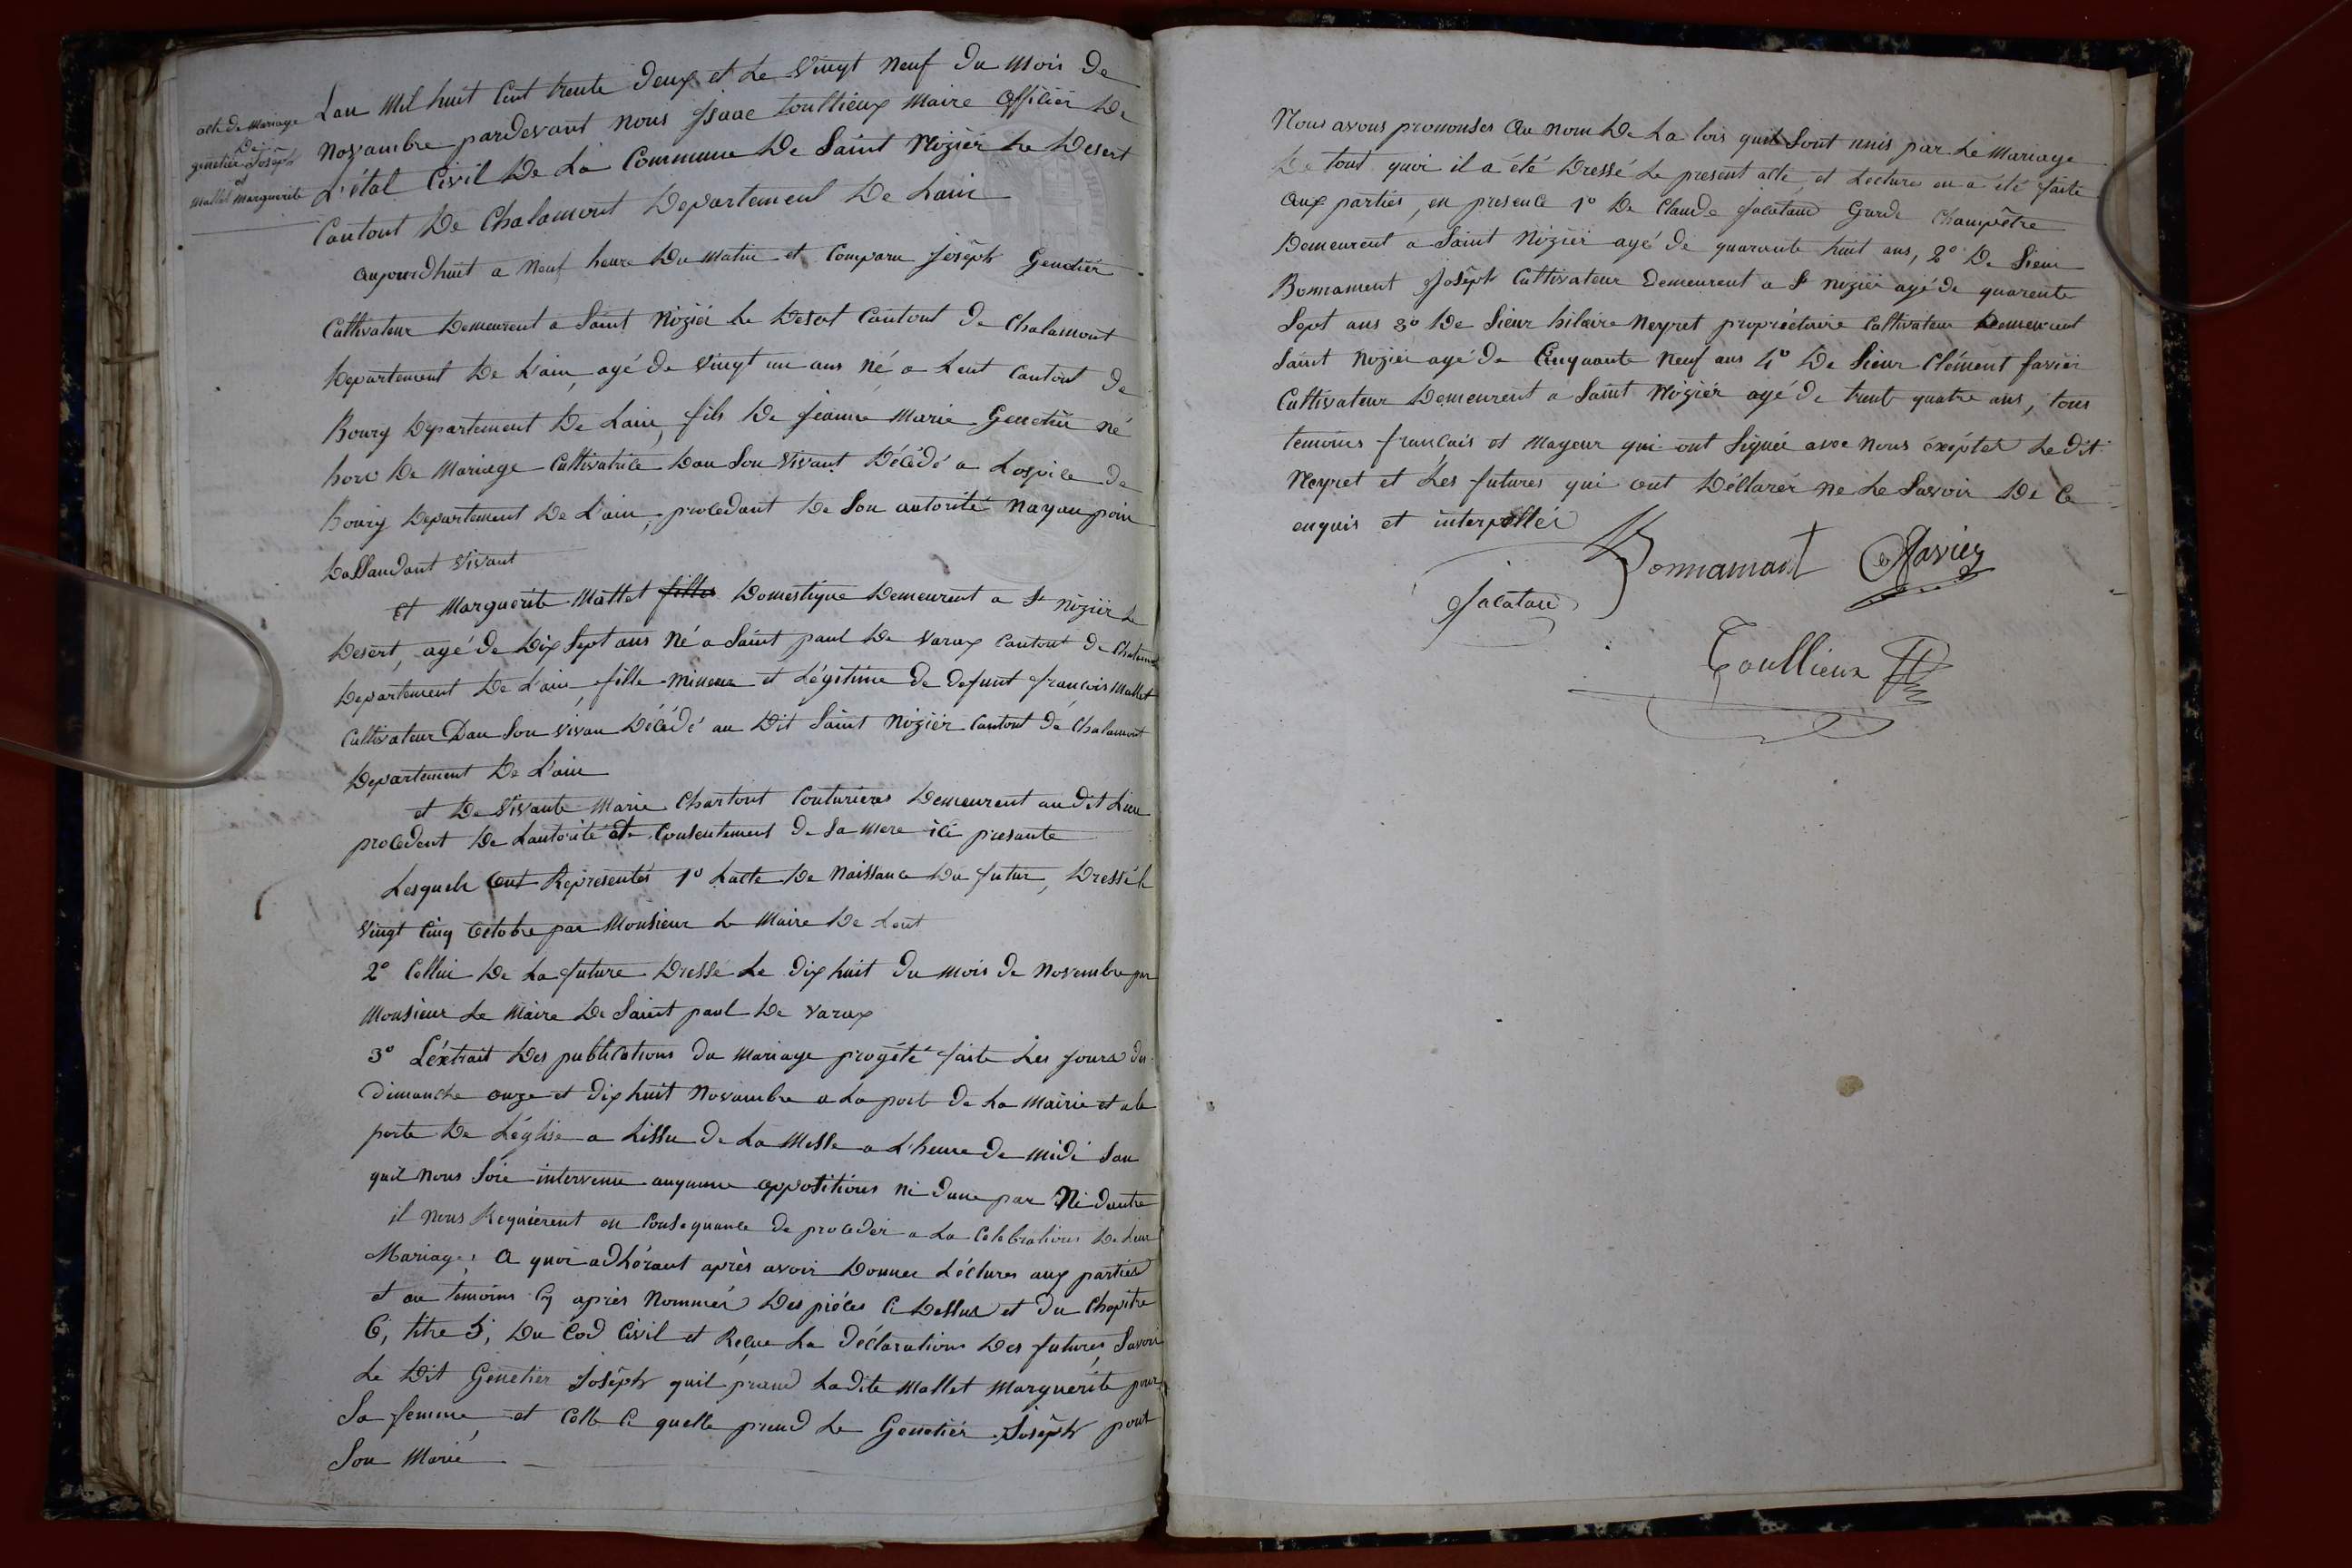 acte de Mariage
De
genetier Joseph
et
Mallet Marguerite
Lan Mil huit Cent trente Deux et Le Vingt Neuf Du Mois De
Novambre pardevant nous Isaac toullieux Maire Officiér De
L'état Civil De La Commune De Saint Nizier Le Desert
Cantont De Chalamont Departement De Lain
aujourdhuit a Neuf heure Du Matin et Comparu joséph Genetiér
Cultivateur Demeurent a Saint Niziér Le Desert Cantont De Chalamont
Departement De L'ain, agé de Vingt un ans Né a Lent Cantont De
Bourg Departement De Lain, fils De jeanne Marie Genetiér Né
hors De Mariage Cultivatrice Dan Son Vivant Décédé a Lospice De
Bourg Departement De L'ain, procedant De Son autorité Nayan poin
Dassandant Vivant
Et Marguerite Mallet filles Domestique Demeurent a St Niziér Le
Desert, agé de Dix Sept ans Né a Saint paul De Varax Cantont De Chalamont
Departement De L'ain, fille Mineure et Légitime De Defunt françois Mallet
Cultivateur Dan Son Vivan Décédé au Dit Saint Niziér Cantont De Chalamont
Departement De L'ain
et De Vivante Marie Chartont Couturieres Demeurent au dit Lieu
procedent De Lautorité et Consentement De Sa Mere ici presante
Lesquels Ont Représentés 1º Lacte De Naissance Du futur, Dressé le
Vingt Cinq Octobre par Monsieur Le Maire De Lent
2º Cellui De La future Dressé Le Dix huit Du Mois De Novembre par
Monsieur Le Maire De Saint paul De Varax
3º L'éxtrait Des publications Du Mariage progété faite Les jours du
Dimanche onze et Dix huit Novambre a La porte De La Mairie et a la
porte De L'église a Lissu De La Messe a L'heure De Midi San
quil Nous Soie intervenu auqunne oppositions Ni Dune par Ni Dautre
il Nous Requiérent en Consequance De procedér a La Celebrations De Leur
Mariage, a quoi adhérant après avoir Donner Léctures aux parties
et au temoins Cy après Nommés Des piéces Ci Dessus et Du Chapitre
6, titre 5, Du Cod Civil et Reçue La Déclarations Des futures, Savoir
Le Dit Genetier Joséph quil prand Ladite Mallet Marguerite pour
Sa femme, et Celle Ci quelle prend Le Genetiér Joséph pour
Son Marié
Nous avons prononses Au nom De La lois quil Sont unis par Le Mariage
De tout quoi il a été Dressé Le present acte, et Lectures en a été faite
Aux parties, en presence 1º De Claude Jacatau Garde Champêtre
Demeurent a Saint Niziér agé de quarante huit ans, 2º De Sieur
Bonnament Joséph Cultivateur Demeurent a St niziér agé de quarente
Sept ans 3º De Sieur hilaire Neyret propriéctaire Cultivateur Demeurent
Saint Niziér agé de Cinquante Neuf ans 4º De Sieur Clément favier
Cultivateur Demeurent a Saint Niziér agé De trente quatre ans, tous
temoins français et Mayeur qui ont Signée avec Nous éxéptet Le dit
Neyret et Les futures qui ont Déclarér Ne Le Savoir De Ce
enquis et interpellés
Bonnamant C favier
Jacatau
Toullieux